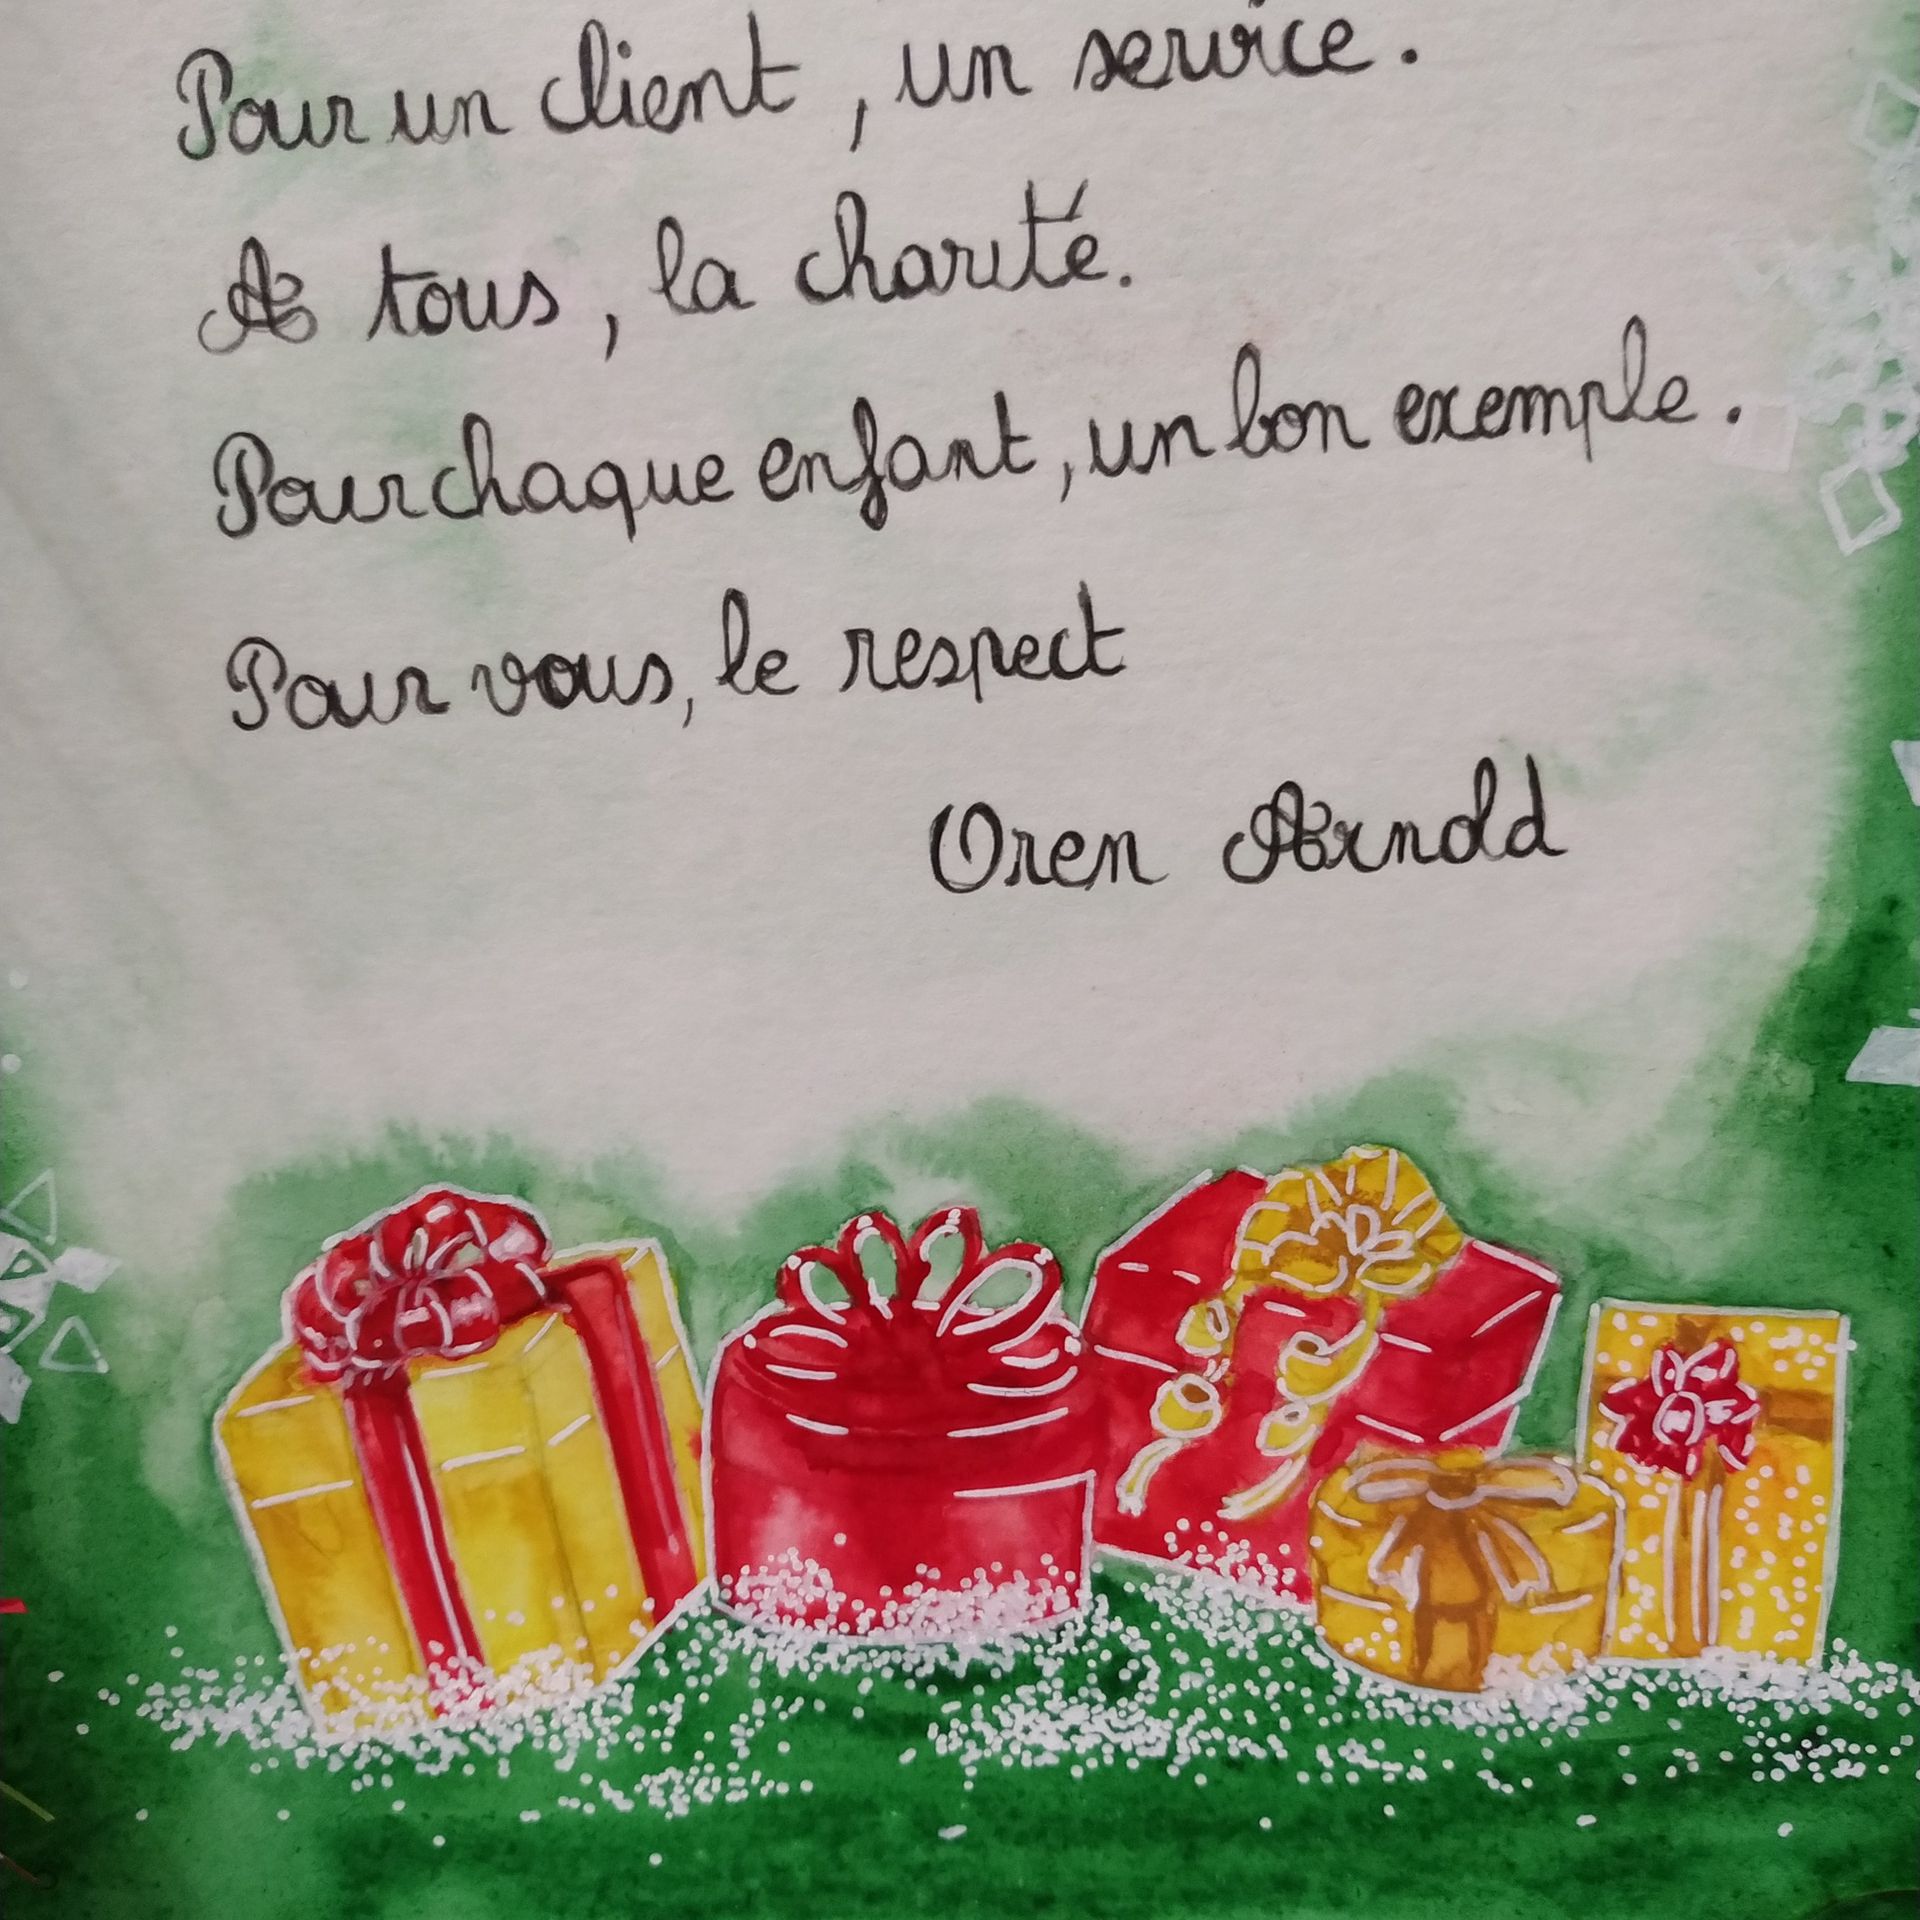 Pour un client, un service.
A tous, la charité.
Pour chaque enfant, un bon exemple.
Pour vous, le respect
Oren Arnold